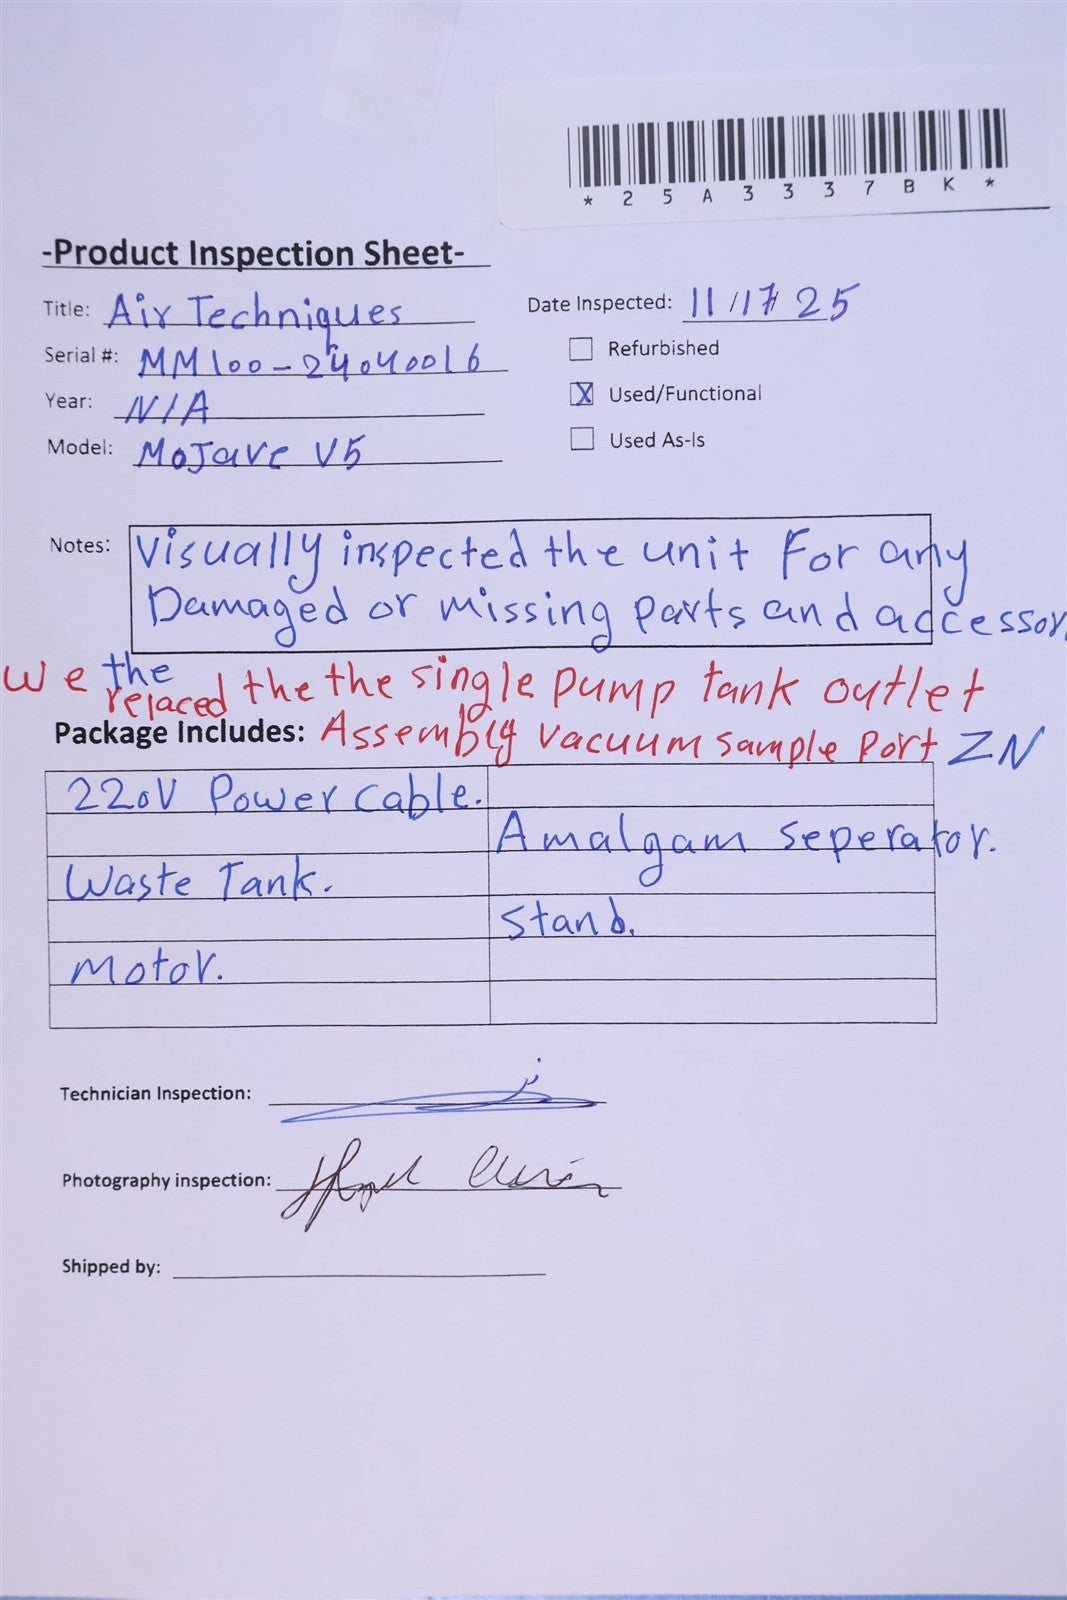 * 2 5 A 3 3 3 7 B K *
-Product Inspection Sheet-
Title: Air Techniques
Date Inspected: 11/17/25
Serial #: MM100-24040016
Refurbished
Year: N/A
X Used/Functional
Model: MoJave V5
Used As-Is
Notes: Visually inspected the unit For any
Damaged or missing parts and accessor
the
We rejaced the the single pump tank outlet
Package Includes: Assembly vacuum sample Port ZN
220V Power cable.
Amalgam seperator.
Waste Tank.
Stand.
Motor.
Technician Inspection:
Photography inspection:
Shipped by: